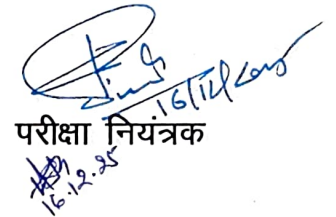 16/12/2025
परीक्षा नियंत्रक
16.12.25